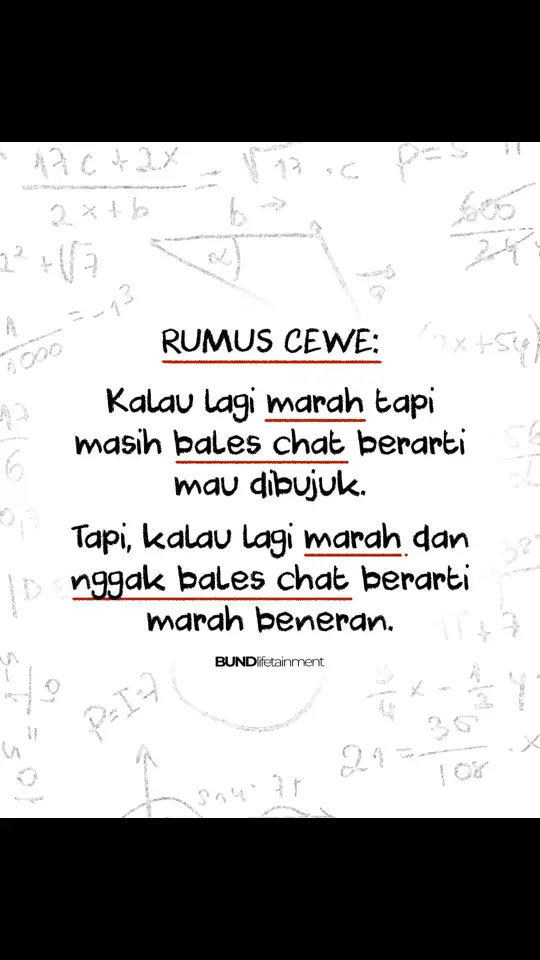 17c + 2x
2x + b
= √17 · c
b
α
a
1
1000
= -1³
RUMUS CEWE:
Kalau lagi marah tapi
masih bales chat berarti
mau dibujuk.
Tapi, kalau lagi marah dan
nggak bales chat berarti
marah beneran.
BUNDlifetainment
P=I·7
21 = 36
108
· x